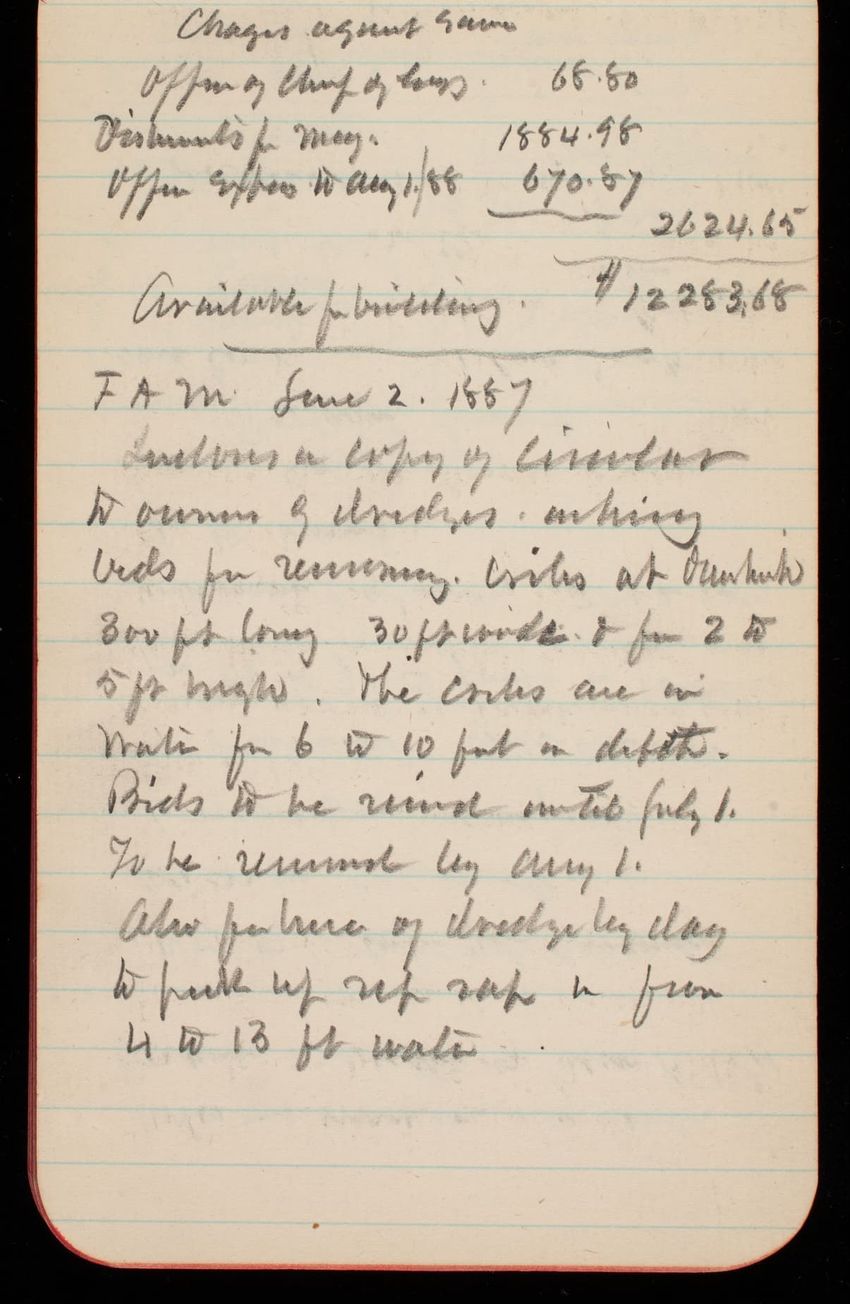 Charges against same
Office of Chief of Engrs. 68.80
Disbursmts for May. 1884.98
Office Expens to Aug 1./88 670.87
2624.65
Available for building. $12283.68
F A M June 2. 1887
Incloses a copy of circular
to owners of dredges. asking
bids for removing. cribs at
300 ft long 30 ft wide. & from 2 to
5 ft high. The cribs are in
Water from 6 to 10 feet in depth.
Bids to be recived until July 1.
To be removed by Aug 1.
Also for hire of dredge by day
to pick up rip rap in from
4 to 13 ft water